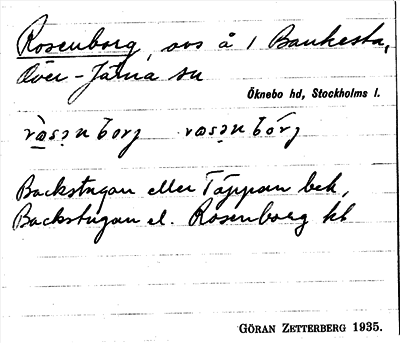 Rosenborg, avs å 1 Bankesta,
Över-Järna sn
Öknebo hd, Stockholms l.
rὰsənborj rωsənbórj
Backstugan eller Täppan bek,
Backstugan el. Rosenborg kt
GÖRAN ZETTERBERG 1935.